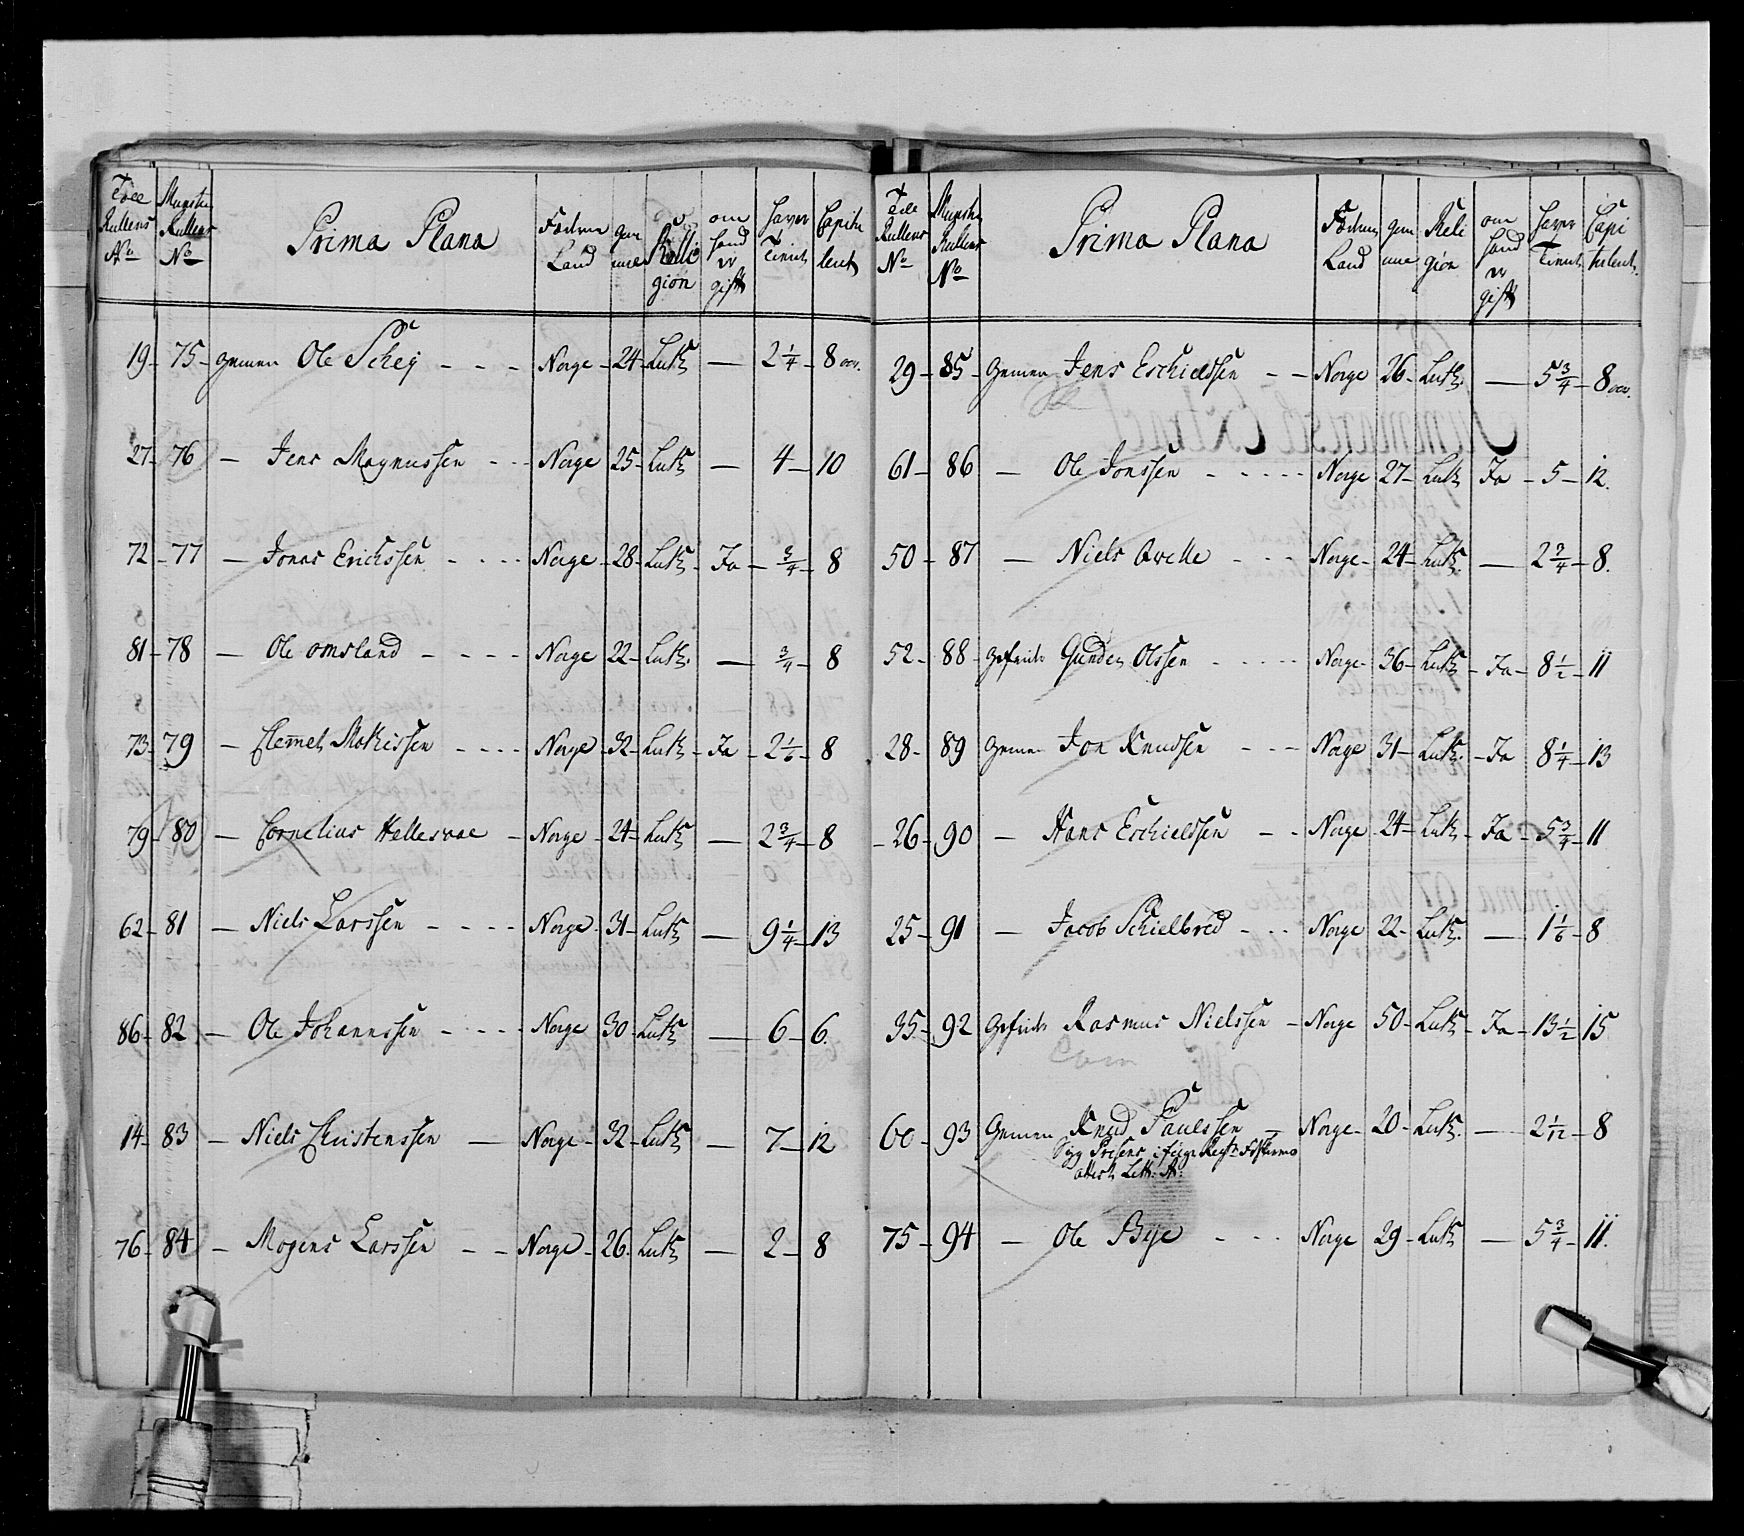 Rullens Rullens Prima Plana Fødene Land gam mel Relli giøn om hand er gift haver Tient Capitu lent
No No
19 - 75 - Gemen Ole Schey - - - Norge - 24 - Luth - 2 1/4 - 8
27 - 76 - Jens Magnussen - - - Norge 25 - Luth - 4 - 10
72 - 77 - Jonas Erichssen - - - - Norge - 28 - Luth - Ja - 3/4 - 8
81 - 78 - Ole omsland - - - - Norge 22 - Luth. - 3/4 - 8
73 - 79 - Clemet - - - - Norge - 32 - Luth - Ja - 8
79 - 80 - Cornelius Hellesvae - Norge - 24 - Luth - 2 3/4 - 8
62 - 81 - Niels Larssen - - - - Norge - 31 - Luth - 9 1/4 - 13
86 - 82 - Ole Johannssen - - - - Norge 30 - Luth - 6 - 6.
14 - 83 - Niels Christenssen - Norge - 32 - Luth - 7 - 12
76 - 84 - Mogens Larssen - - Norge - 26 - Luth - 2 - 8
Rullens Rullens Prima Plana Land gam mel Reli giøn om hand er gift haver Tient Capi tulent.
No No
29 - 85 - Gemen Jens Eschieldssen - - Norge 26 - Luth. - 5 3/4 - 8
61 - 86 - Ole Jonssen - - - - - Norge 27 - Luth Ja - 5 - 12.
50 - 87 - Niels - - - Norge - 24 - Luth. - 2 3/4 - 8.
52 - 88 - Gefreider Gunder Olssen - - - - - Norge - 36 - Luth - Ja - 8 1/2 - 11
28 - 89 Gemen Jon Knudsen - - - Norge 31 - Luth. - Ja 8 1/4 - 13
- 26 - 90 - Hans Eschieldssen - - Norge - 24 - Luth - Ja - 5 3/4 - 11
25 - 91 - Jacob Schielbred - - - Norge 22 - Luth. - 1 1/6 - 8
35 - 92 Gefreider Rasmus Nielssen - Norge 50 - Luth - Ja - 13 1/2 15
60 - 93 Gemen Knud Paulssen - Norge - 20 - Luth. - 2 1/12 - 8
Syg
attest Litt: A:
75 - 94 - Ole Bye - - - Norge 29 - Luth - 5 3/4 - 11.